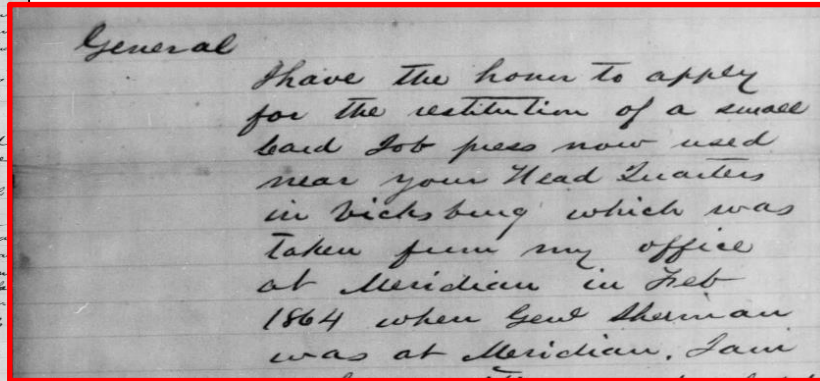 General
I have the honor to apply
for the restitution of a small
Card Job press now used
near your Head Quarters
in Vicksburg which was
taken from my office
at Meridian in Feb
1864 when Genl Sherman
was at Meridian. I am